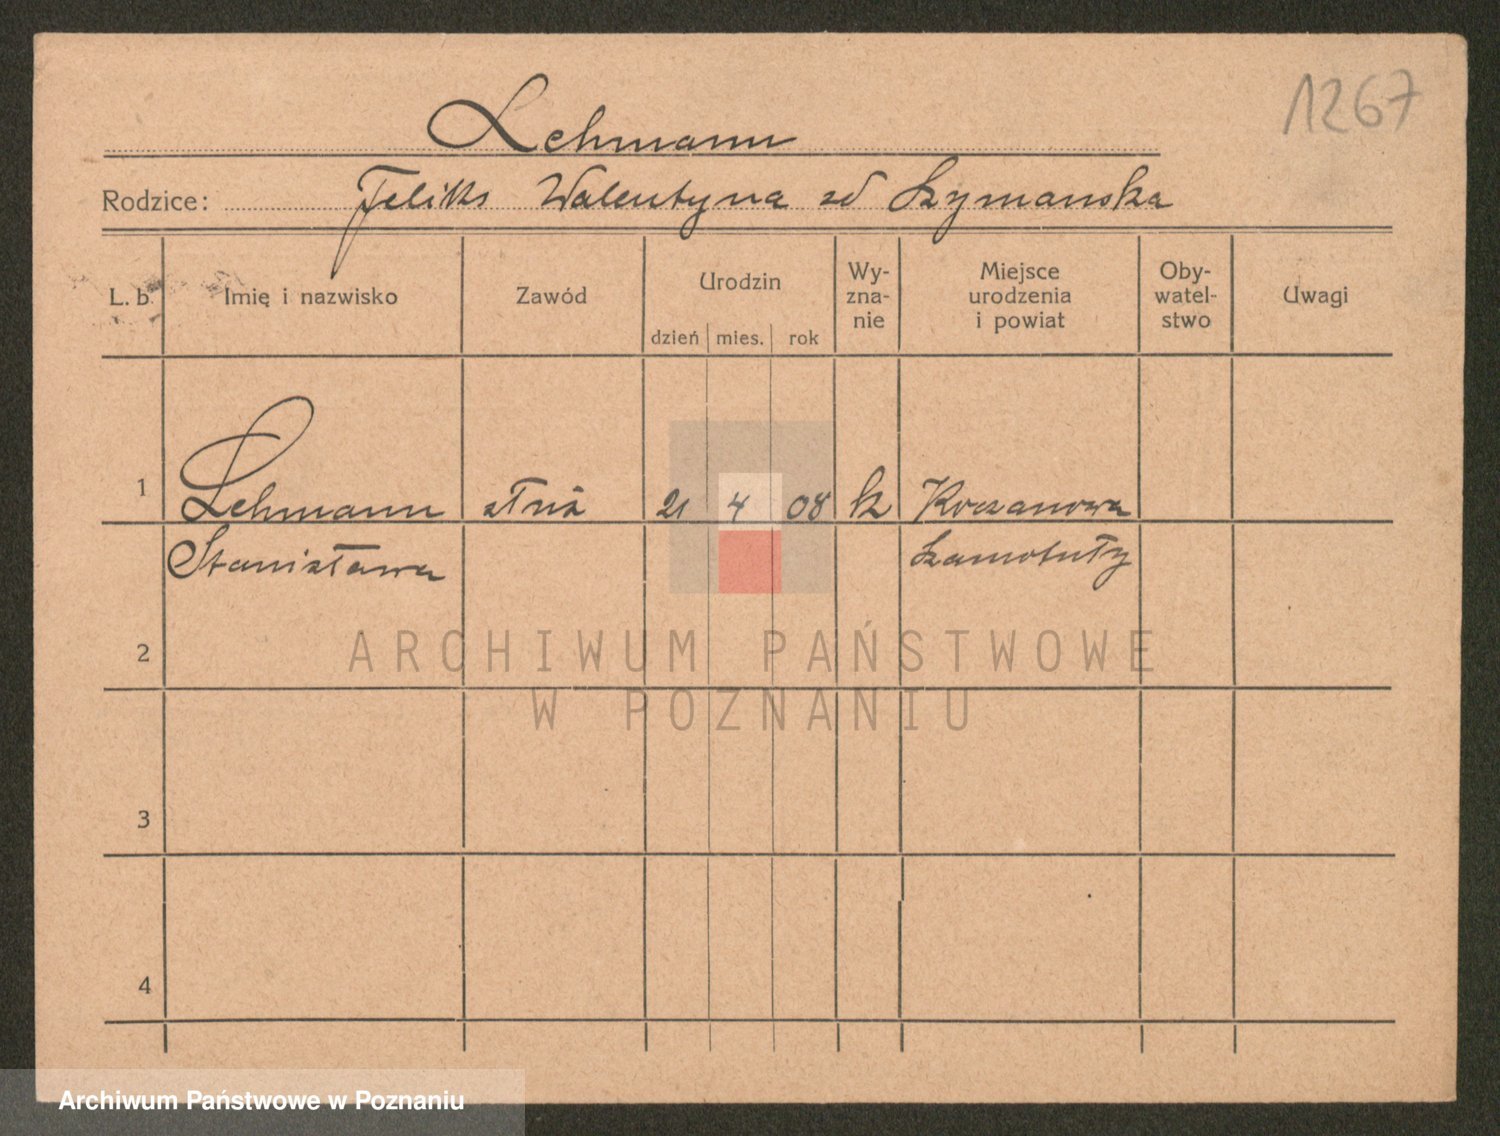 1267
Lehmann
Rodzice: Feliks Walentyna zd Szymanska
L. b. Imię i nazwisko Zawód Urodzin dzień mies. rok Wy-zna-nie Miejsce urodzenia i powiat Oby-watel-stwo Uwagi
1 Lehmann 21 4 08 k
Stanisława Szamotuły
2
ARCHIWUM PAŃSTWOWE
W POZNANIU
3
4
Archiwum Państwowe w Poznaniu